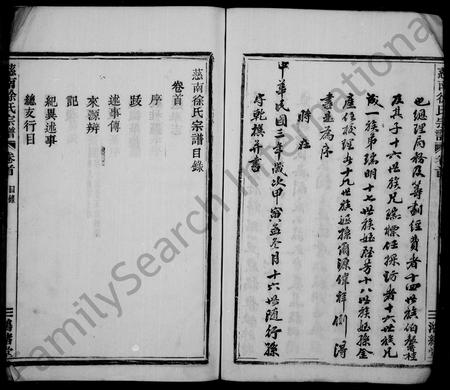 也總理局務及籌劃經費者十四世族伯
及其子十六世族兄總標任採訪者十六世族兄
成一族弟瑞明十七世族姪啓芳十八世族姪孫金
產任校理者十九世族姪孫爾源偉祥側得
書
為序
時在
中華民國三年歲次甲寅孟冬月十六世隨行孫
守乾撰并書
慈南徐氏宗譜
慈南徐氏宗譜目錄
卷首
序
跋
述事傳
來源辨
記
紀異述事
總支行目
慈南徐氏宗譜 卷首 目錄
FamilySearch International